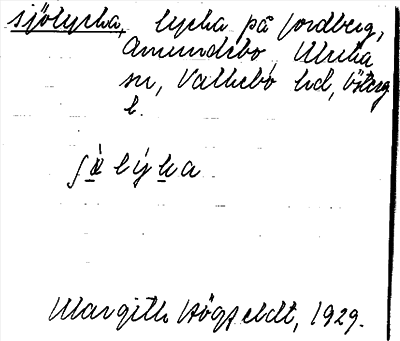 sjölycka, lycka på Jordberg,
Amundebo Ulrika
sn, Valkebo hd, Österg
l.
Margith Högfeldt, 1929.